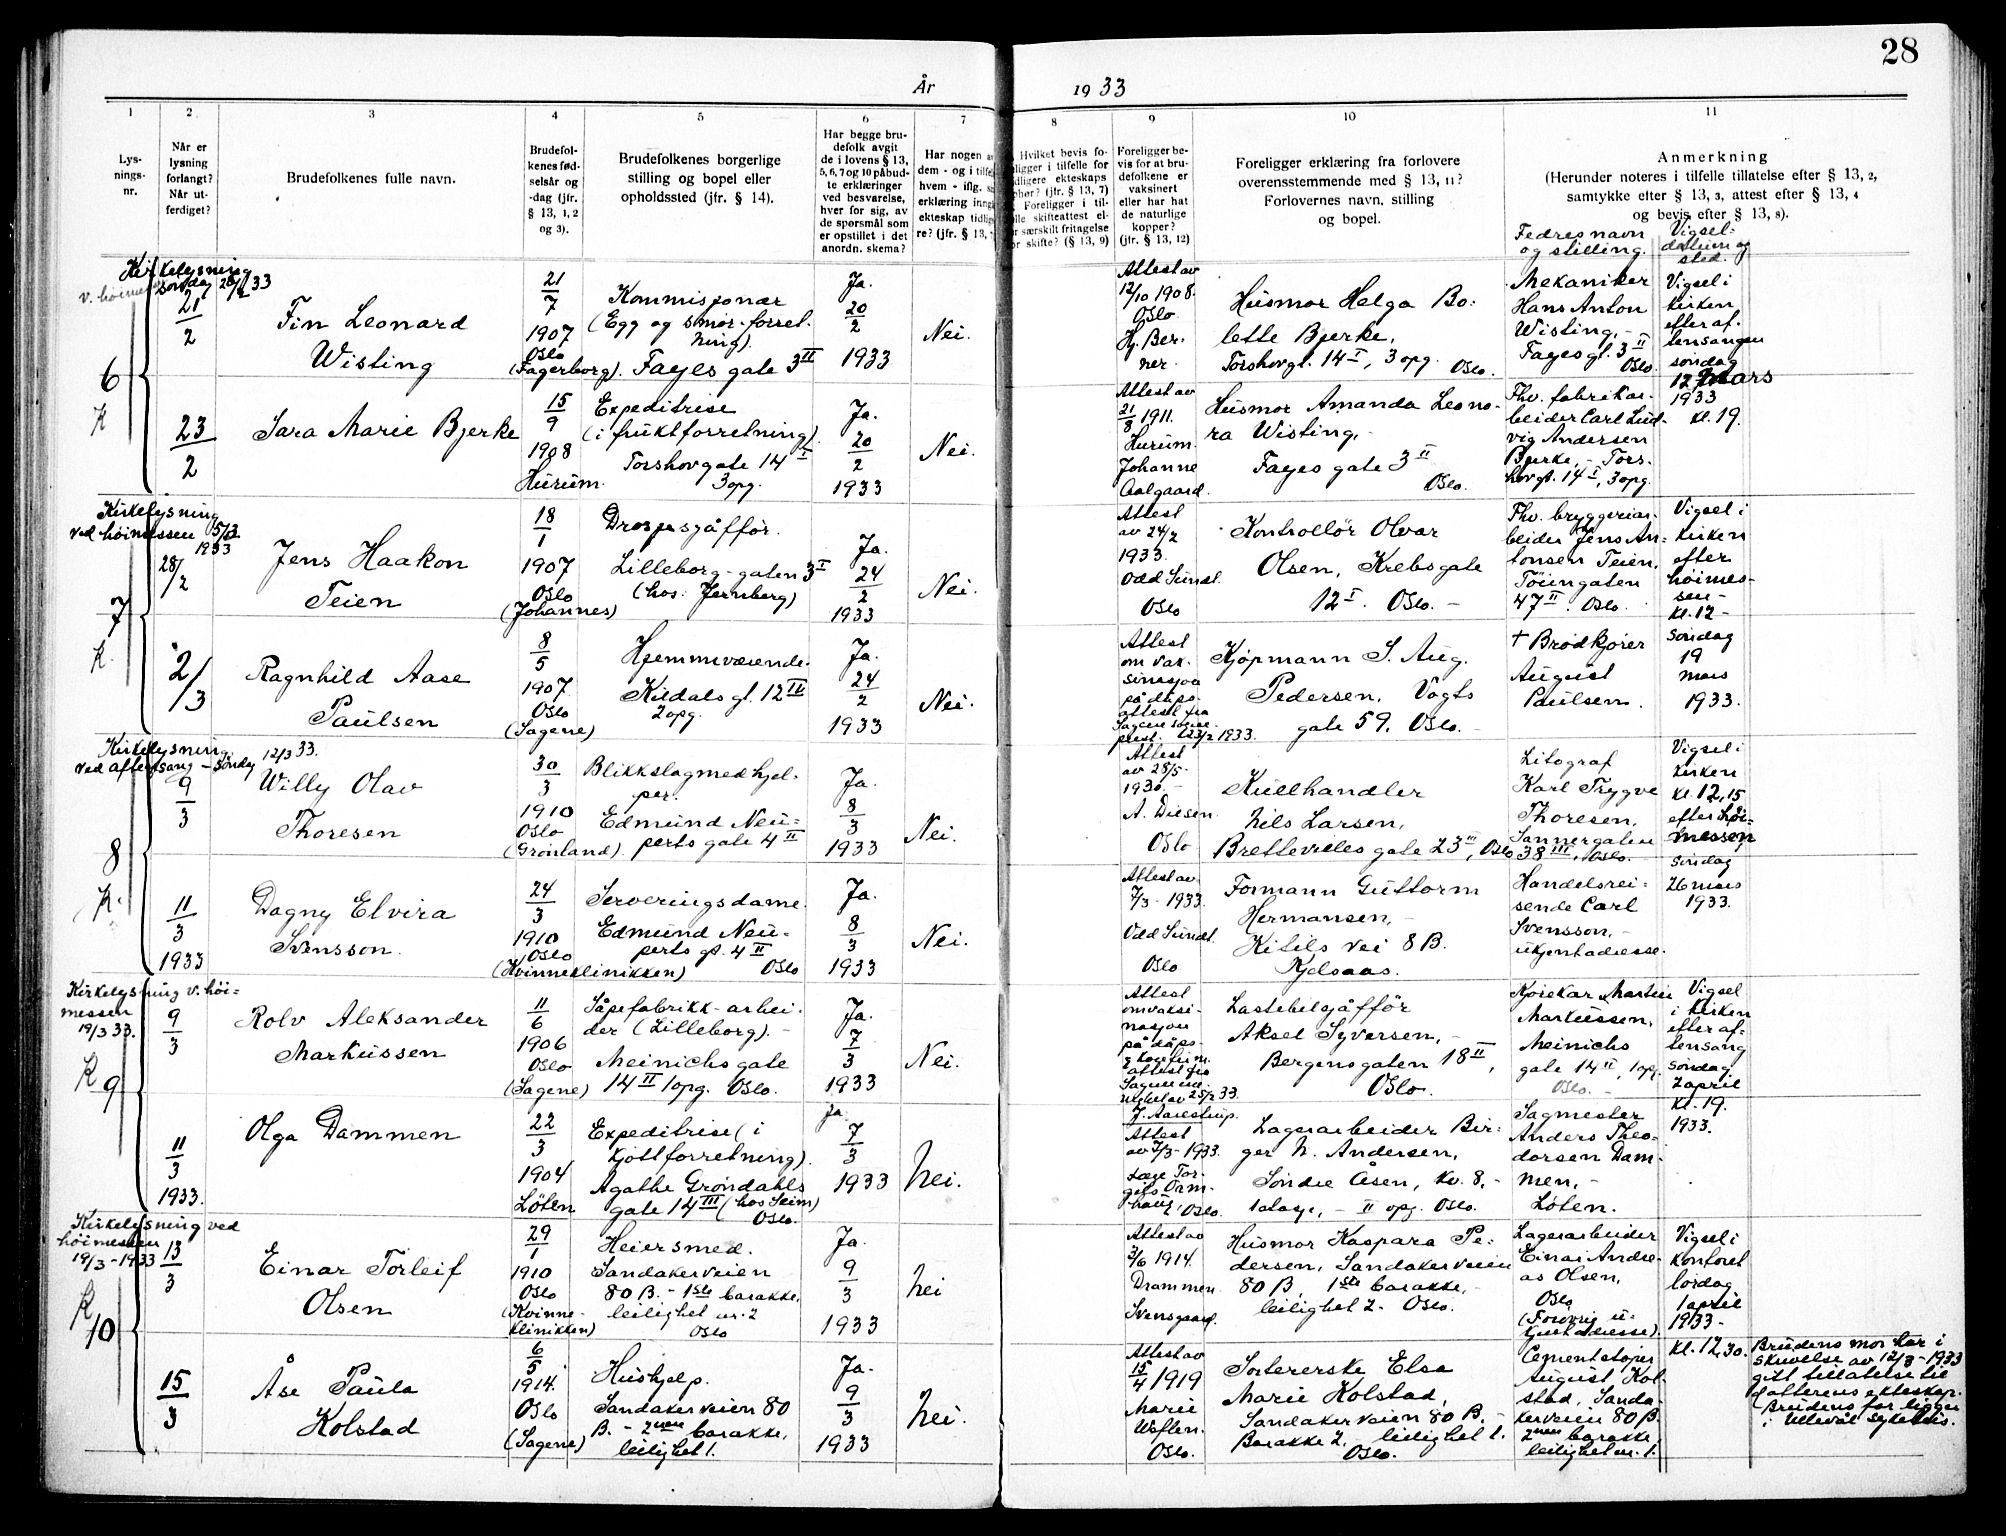 28
År 1933
1
2
3
4
5
6
7
8
9
10
11
Lys-
nings-
nr.
Når er
lysning
forlangt?
Når ut-
ferdiget?
Brudefolkenes fulle navn.
Brudefol-
kenes fød-
selsår og
-dag (jfr.
§ 13, 1, 2
og 3).
Brudefolkenes borgerlige
stilling og bopel eller
opholdssted (jfr. § 14).
Har begge bru-
defolk avgit
de i lovens § 13,
5, 6, 7 og 10 påbud-
te erklæringer
ved besvarelse,
hver for sig, av
de spørsmål som
er opstillet i det
anordn. skema?
Har nogen a
dem - og i tilfel
hvem - iflg. s
erklæring inng
ekteskap tidlig
re? (jfr. § 13,
Hvilket bevis fo-
ligger i tilfelle for
dligere ekteskaps
phør? (jfr. § 13, 7)
Foreligger i til-
lle skifteattest el-
r særskilt fritagelse
or skifte? (§ 13, 9)
Foreligger be-
vis for at bru-
defolkene er
vaksinert
eller har hat
de naturlige
kopper?
(jfr. § 13, 12)
Foreligger erklæring fra forlovere
overensstemmende med § 13, 11?
Forlovernes navn, stilling
og bopel.
Anmerkning
(Herunder noteres i tilfelle tillatelse efter § 13, 2,
samtykke efter § 13, 3, attest efter § 13, 4
og bevis efter § 13, 8).
Fedres navn
og stilling.
Vigsel-
datum og
sted.
Kirkelysning
søndag 26/2 33
6
K
21/2
Fin Leonard
Wisting
21/7
1907
Oslo
(Fagerborg).
Kommisjonær
(Egg og smør-forret-
ning).
Fayes gate 3 II
Ja.
20/2
1933
Nei.
Attest av
12/10 1908.
Oslo
Hj. Ber-
ner.
Husmor Helga Bo-
lette Bjerke,
Torshovgt. 14 I, 3 opg. Oslo.
Mekaniker
Hans Anton
Wisting, -
Fayesgt. 3 II
Oslo.
Vigsel i
kirken
efter af-
tensangen
søndag
12 Mars
1933
kl. 19.
23/2
Sara Marie Bjerke
15/9
1908
Hurum.
Expeditrise
(i fruktforretning).
Torshovgate 14 I
3 opg.
Ja.
20/2
1933
Nei.
Attest av
21/8 1911.
Hurum.
Johanne
Aalgaard.
Husmor Amanda Leono-
ra Wisting, -
Fayes gate 3 II
Oslo.
Fhv. fabrikar-
beider Carl Lud-
vig Andersen
Bjerke, - Tors-
hovgt. 14 I, 3 opg.
Kirkelysning
ved høimessen 5/3
1933
7
K.
28/2
Jens Haakon
Teien
18/1
1907
Oslo
(Johannes)
Drosjesjåffør.
Lilleborg-gaten 3 I
(hos: Jernberg)
Ja.
24/2
1933
Nei.
Attest
av 24/2
1933.
Odd Sundt.
Oslo
Kontrollør Olvar
Olsen, Krebsgate
12 I. Oslo. -
Fhv. bryggeriar-
beider Jens An-
tonsen Teien,
Tøiengaten
47 II. Oslo.
Vigsel i
kirken
efter
høimes-
sen -
kl. 12 -
søndag
19
mars
1933.
2/3
Ragnhild Aase
Paulsen
8/5
1907.
Oslo
(Sagene)
Hjemmeværende.
Kildals gt. 12 II
2 opg.
Ja.
24/2
1933
Nei.
Attest
om vak-
sinasjon
på dåps-
attest fra
Sagene sogne-
prest. 23/2 1933.
Kjøpmann S. Aug.
Pedersen, Vogts
gate 59, Oslo.
† Brødkjører
August
Paulsen.
Kirkelysning
ved aftensang - søndag 12/3 33.
8
K.
9/3
Willy Olav
Thoresen
30/3
1910
Oslo
(Grønland).
Blikkslagmedhjel-
per.
Edmund Neu-
perts gate 4 II
Ja.
8/3
1933
Nei.
Attest
av 28/5-
1930. -
A. Diesen.
Oslo
Kullhandler
Nils Larsen,
Brettevilles gate 23 III, Oslo
Litograf
Karl Trygve
Thoresen,
Sannergaten
38 III, Oslo.
Vigsel i
kirken
kl. 12,15
efter høi-
messen
søndag
26 mars
1933.
11/3
1933
Dagny Elvira
Svensson.
24/3
1910
Oslo
(Kvinneklinikken)
Serveringsdame.
Edmund Neu-
perts gt. 4 II
Oslo
Ja.
8/3
1933
Nei.
Attest av
7/3 - 1933.
Odd Sundt.
Oslo
Formann Guttorm
Hermansen, -
Kitils vei 8 B.
Kjelsaas.
Handelsrei-
sende Carl
Svensson, -
ukjent adresse.
Kirkelysning v. høi-
messen
19/3 33.
K 9
9/3
Rolv Aleksander
Markussen
11/6
1906
Oslo
(Sagene)
Såpefabrikk-arbei-
der (Lilleborg). -
Meinichs gate
14 II 1 opg. Oslo.
Ja.
7/3
1933
Nei.
Attest
om vaksi-
nasjon
på dåps-
attest fra
25/2 33.
J. Aarestrup.
Lastebilsjåffør
Aksel Syversen, -
Bergensgaten 18 II,
Oslo.
Martin
Markussen,
Meinichs
gate 14 II, 1 opg.
Oslo. -
Vigsel
i kirken
efter af-
tensang
søndag
2 april
kl. 19.
1933.
11/3
1933.
Olga Dammen
22/3
1904
Løten
Expeditrise (i
kjøttforretning).
Agathe Grøndahls
gate 14 III (hos Seim)
Oslo.
Ja.
7/3
1933
Nei.
Attest
av 7/3 - 1933.
Oslo.
Lagerarbeider Bir-
ger N. Andersen,
Søndre Åsen, kv. 8, -
1 etasje, - II opg. Oslo.
Sagmester
Anders Theo-
dorsen Dam-
men, -
Løten.
Kirkelysning ved
høimessen
19/3 - 1933
K 10
13/3
Einar Torleif
Olsen
29/1
1910
Oslo
(Kvinne-
klinikken)
Heiersmed.
Sandakerveien
80 B. - 1ste barakke,
leilighet nr. 2
Oslo
Ja.
9/3
1933
Nei
Attest av
3/6 1914.
Drammen
Svensgaard.
Husmor Kaspara Pe-
dersen, Sandakerveien
80 B, 1ste barakke, -
leilighet 2. Oslo.
Lagerarbeider
Einar Andre-
as Olsen,
Oslo
(Forøvrig u-
kjent adresse).
Vigsel i
kontoret
lørdag
1 april
1933 -
kl. 12,30.
15/3
Åse Paula
Kolstad
6/5
1914.
Oslo
(Sagene)
Hushjelp.
Sandakerveien 80
B. - 2nen barakke,
leilighet 1.
Ja.
9/3
1933
Nei.
Attest av
15/4 1919
Marie
Oslo.
Sortererske Elsa
Marie Kolstad,
Sandakerveien 80 B. -
Barakke 2. - leilighet 1.
Oslo.
Cementstøper
August Kol-
stad, Sanda-
kerveien 80 B.
2nen barakke,
leilighet nr. 1.
Brudens mor har i
skrivelse av 12/3 - 1933
gitt tillatelse til
datterens ekteskap.
Brudens far ligger
i Ullevål sykehus.